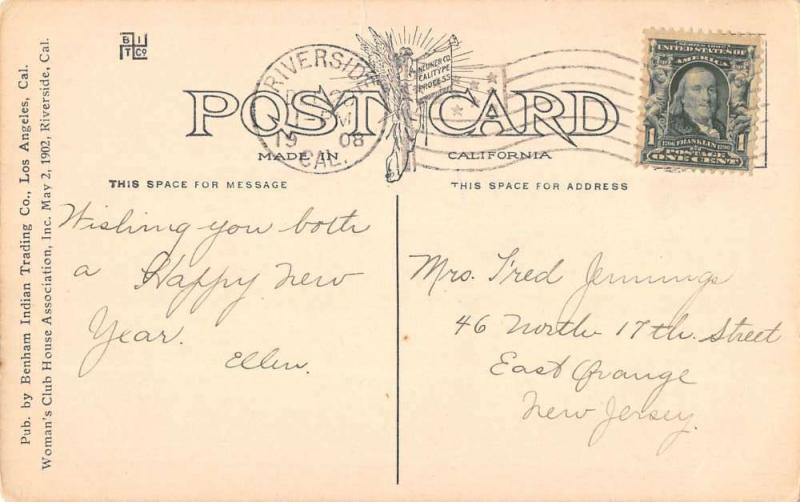 B I
T Co
RIVERSIDE
19 08
CAL.
NEUNER CO.
CALITYPE
PROCESS
SERIES 1902
UNITED STATES OF
AMERICA
1
FRANKLIN
POSTAGE
ONE CENT
POST CARD
MADE IN CALIFORNIA
THIS SPACE FOR MESSAGE
THIS SPACE FOR ADDRESS
Pub. by Benham Indian Trading Co., Los Angeles, Cal.
Woman's Club House Association, Inc. May 2, 1902, Riverside, Cal.
Wishing you both
a Happy New
Year.
Ellen.
Mrs. Fred Jennings
46 North 17th. Street
East Orange
New Jersey.